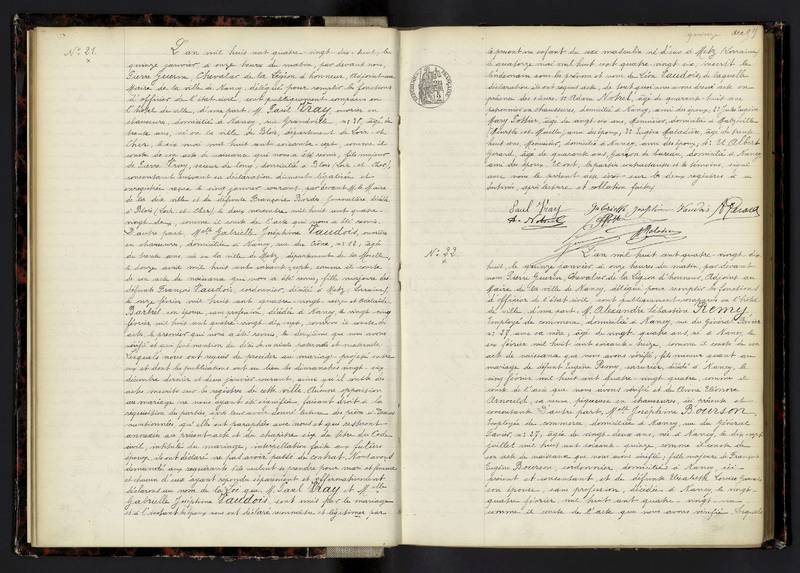 N° 21.
L'an mil huit cent quatre-vingt-dix-huit, le
quinze janvier à onze heures du matin, par devant nous,
Pierre Guerin, Chevalier de la Légion d'honneur, Adjoint au
Maire de la ville de Nancy, délégué pour remplir les fonctions
d'officier de l'état civil, ont publiquement comparu en
l'hôtel de ville, d'une part M. Paul Vray, ouvrier en
chaussures, domicilié à Nancy, rue Grandville n° 38, âgé de
trente ans, né en la ville de Blois, département de Loir-et-
Cher, le dix mai mil huit cent soixante-sept, comme il
conste de son acte de naissance qui nous a été remis, fils majeur
de Pierre Vray, domicilié à Blois (Loir et Cher),
consentant suivant sa déclaration dûment légalisée et
enregistrée reçue le cinq janvier courant, par devant M. le Maire
de la dite ville et de défunte Françoise décédée
à Blois (Loir et Cher), le deux novembre mil huit cent quatre-
vingt-deux, comme il conste de l'acte qui nous a été remis.
D'autre part, Melle Gabrielle Joséphine Vaudois, ouvrière
en chaussures, domiciliée à Nancy, rue du Crône, n° 82, âgée
de trente ans, née en la ville de Metz, département de la Moselle,
le douze avril mil huit cent soixante-sept, comme il conste
de son acte de naissance qui nous a été remis, fille majeure de
défunts François Vaudois, cordonnier, décédé à Metz (Lorraine),
le onze février mil huit cent quatre-vingt-seize et Adélaïde
Barbel son épouse, sans profession, décédée à Nancy, le vingt-cinq
février mil huit cent quatre-vingt-dix-sept, comme il conste des
actes, le premier qui nous a été remis, le deuxième que nous avons
vérifié et qui font mention du décès des aïeuls paternels et maternels.
Lesquels nous ont requis de procéder au mariage projeté entre
eux et dont les publications ont eu lieu les dimanches vingt-six
décembre dernier et deux janvier courant, ainsi qu'il conste des
actes inscrits sur le registre de cette ville. Aucune opposition
au mariage ne nous ayant été signifiée, faisant droit à la
réquisition des parties, après leur avoir donné lecture des pièces ci-dessus
mentionnées, qu'elles ont paraphées avec nous et qui resteront
annexées au présent acte et du chapitre six du titre du Code
civil, intitulé du mariage, interpellation faite aux futurs
époux, ils ont déclaré ne pas avoir passé de contrat. Nous avons
demandé aux requérants s'ils veulent se prendre pour mari et femme
et chacun d'eux ayant répondu séparément et affirmativement
déclarons au nom de la loi que M. Paul Vray et Melle
Gabrielle Joséphine Vaudois, sont unis par le mariage
et à l'instant les époux nous ont déclaré reconnaître et légitimer par
le présent un enfant du sexe masculin né d'eux à Metz (Lorraine)
le quatorze mai mil huit cent quatre-vingt-six, inscrit le
lendemain sous le prénom et nom de Léon Vaudois, de laquelle
déclaration ils ont requis acte, de tout quoi nous avons dressé acte en
présence des sieurs: 1° Adam Notrel, âgé de quarante-huit ans,
domicilié à Nancy, ami des époux; 2°
âgé de vingt-six ans, Menuisier, domicilié à
(Meurthe-et-Moselle), ami des époux; 3° Eugène Maladière, âgé de trente-
huit ans, Menuisier, domicilié à Nancy, ami des époux; 4° Et Albert
Gérard, âgé de quarante ans, Garçon de bureau, domicilié à Nancy,
ami des époux. Et ont, les parties contractantes et les témoins, signé
avec nous le présent acte inscrit sur les deux registres à ce
destinés, après lecture et collation faites.
Paul Vray Gabrielle Joséphine Vaudois A. Gérard
A. Notrel
N° 22.
L'an mil huit cent quatre-vingt-dix-
huit, le quinze janvier à onze heures du matin, par devant
nous Pierre Guerin, Chevalier de la Légion d'honneur, Adjoint au
Maire de la ville de Nancy, délégué pour remplir les fonctions
d'officier de l'état civil, ont publiquement comparu en l'hôtel
de ville, d'une part, M. Alexandre Sébastien Remy,
Employé de commerce, domicilié à Nancy, rue du général
n° 37, avec sa mère, âgé de vingt-quatre ans, né à Nancy, le
six février mil huit cent soixante-treize, comme il conste de son
acte de naissance que nous avons vérifié, fils mineur quant au
mariage de défunt Eugène Remy, serrurier, décédé à Nancy, le
cinq février mil huit cent quatre-vingt-quatre, comme il
conste de l'acte que nous avons vérifié et de Anne Eléonore
Arnould, sa veuve, piqueuse en chaussures, ici présente et
consentante. D'autre part, Melle Joséphine Bourson,
Employée de commerce, domiciliée à Nancy, rue du général
n° 27, âgée de vingt-deux ans, née à Nancy, le dix-sept
juillet mil huit cent soixante-quinze, comme il conste de
son acte de naissance que nous avons vérifié, fille majeure de François
Eugène Bourson, cordonnier, domicilié à Nancy, ici
présent et consentant, et de défunte Elisabeth Louise
son épouse, sans profession, décédée à Nancy, le vingt-
quatre février mil huit cent quatre-vingt-
comme il conste de l'acte que nous avons vérifié. Lesquels